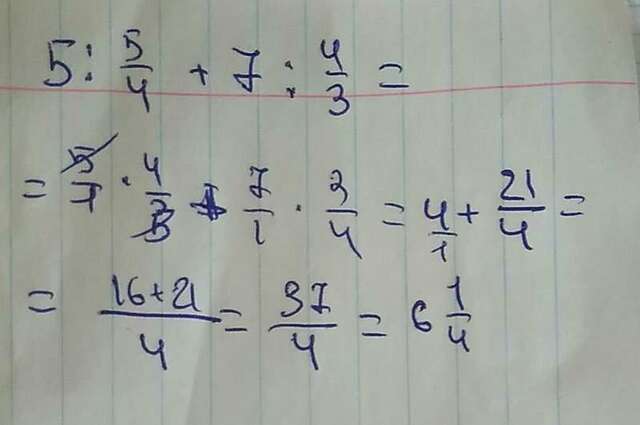 5 : 5/4 + 7 : 4/3 =
= 5/1 · 4/5 + 7/1 · 3/4 = 4/1 + 21/4 =
= (16+21)/4 = 37/4 = 6 1/4